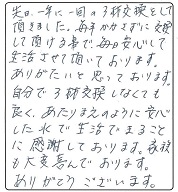 先日、一年に一回の3針交換をして
頂きました。毎年かかさずに交換
して頂ける事で毎日安心して
生活させて頂いております。
ありがたいと思っております。
自分で3針交換しなくても
良く、あたりまえのように安心
した水で生活できること
に感謝しております。家族
も大変喜んでおります。
ありがとうございます。